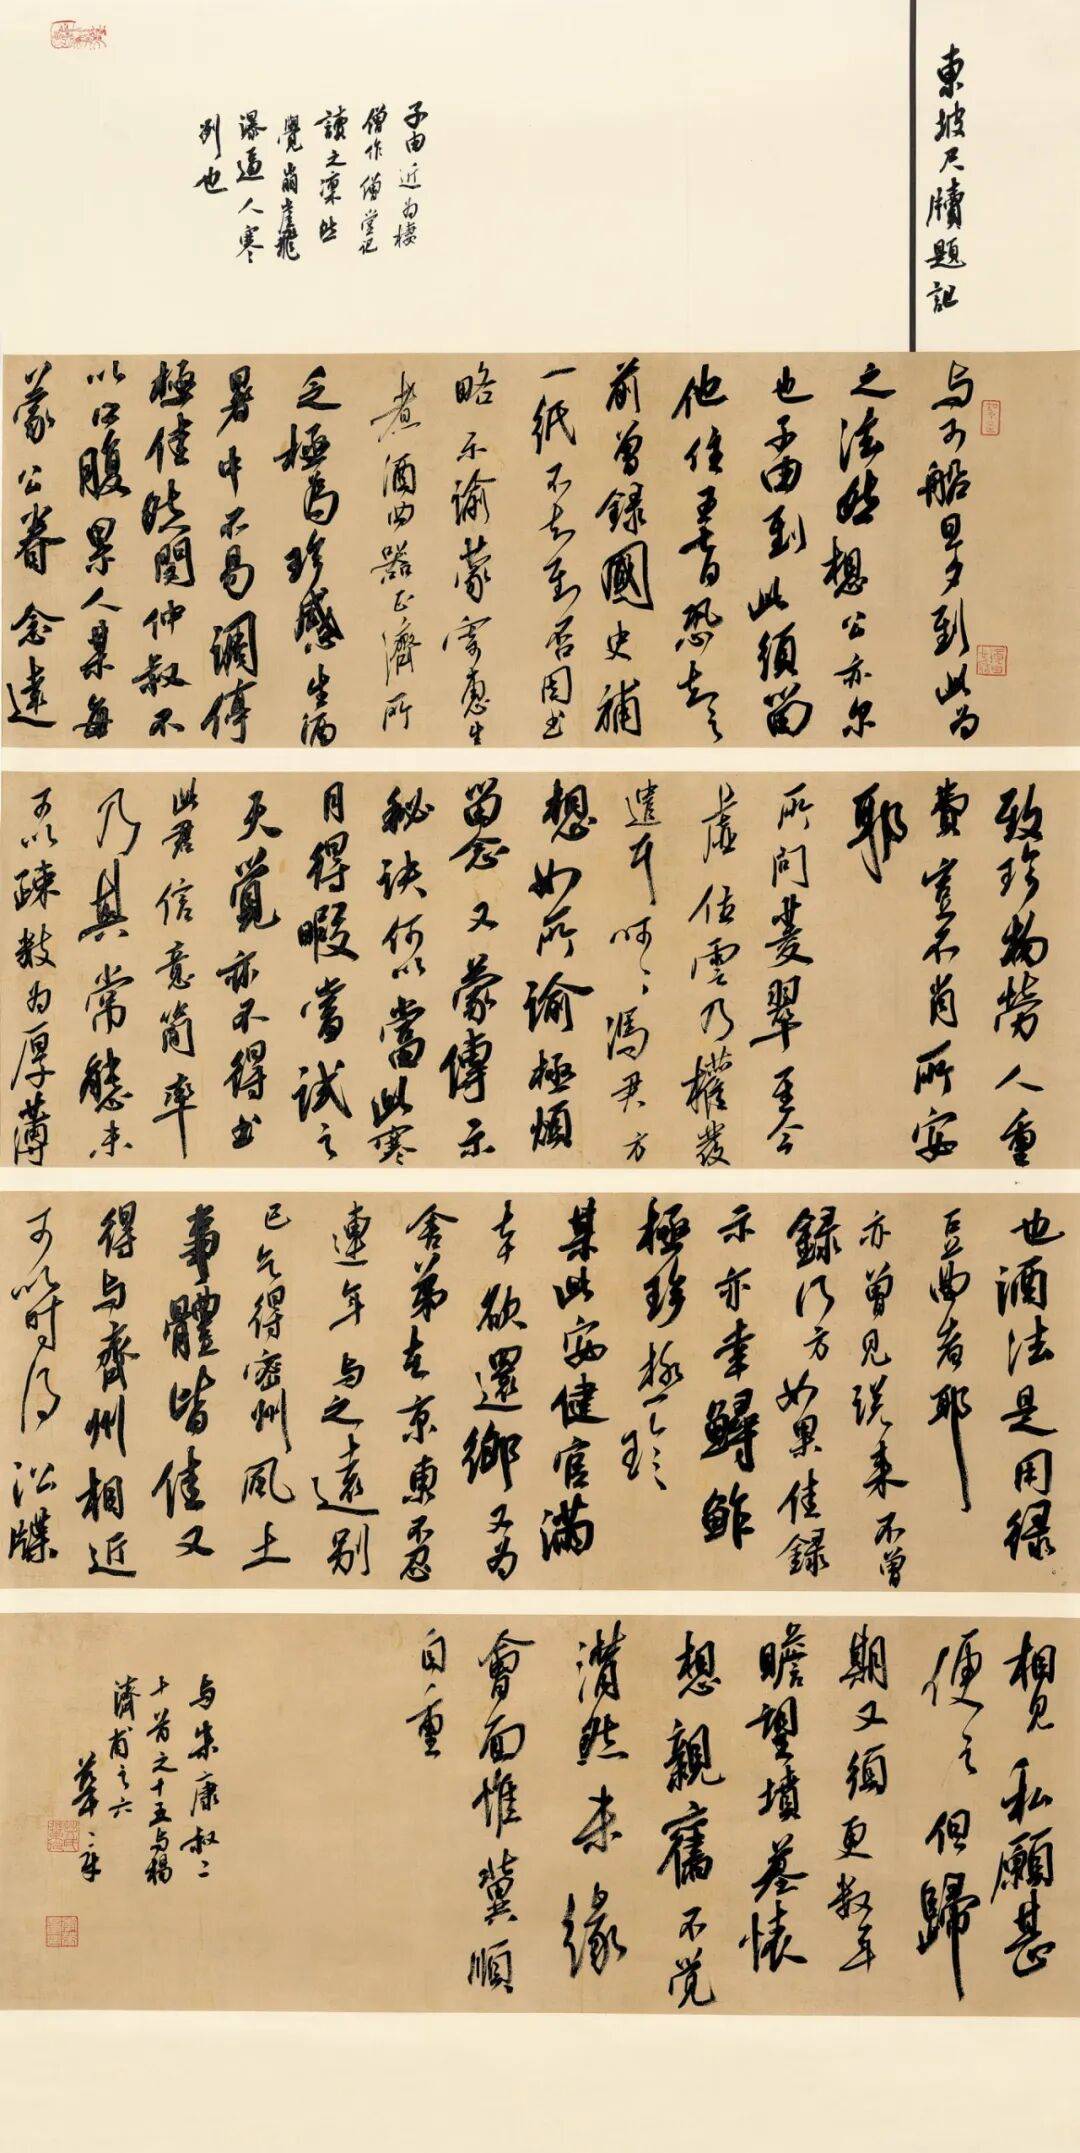 東坡尺牘題記
子由近為棲
僧作僧堂記
讀之凜然
覺崩崖飛
瀑逼人寒
冽也
与可船旦夕到此為
之法然想公亦尔
也子由到此須留
他住五七日恐知之
前曾録國史補
一紙不知到否因书
略示諭蒙寄惠生
煮酒四器正濟所
乏極為珍感生酒
暑中不易調停
極佳然閔仲叔不
以口腹累人某每
蒙公眷念遠
致珍物勞人重
費豈不肖所安
耶
所問菱翠至今
虛位雲乃權發
遣耳呵呵馮君方
想如所諭極煩
留念又蒙傳示
秘訣何以當此寒
月得暇當試之
天覺亦不得书
此君信意簡率
乃其常態未
可以疎數为厚薄
也酒法是用緑
豆曲者耶
亦曾見说来不曾
録得方如果佳録
示亦幸鱘鮓
極珍極珍
某此安健官滿
本欲還鄉又为
舍弟在京東不忍
連年与之遠别
已乞得密州風土
事體皆佳又
得与齊州相近
可以时得沿牒
相見私願甚
便之但歸
期又須更数年
瞻望墳墓懷
想親舊不觉
潸然未缘
會面惟冀順
自重
与朱康叔二
十首之十五与楊
濟甫之六